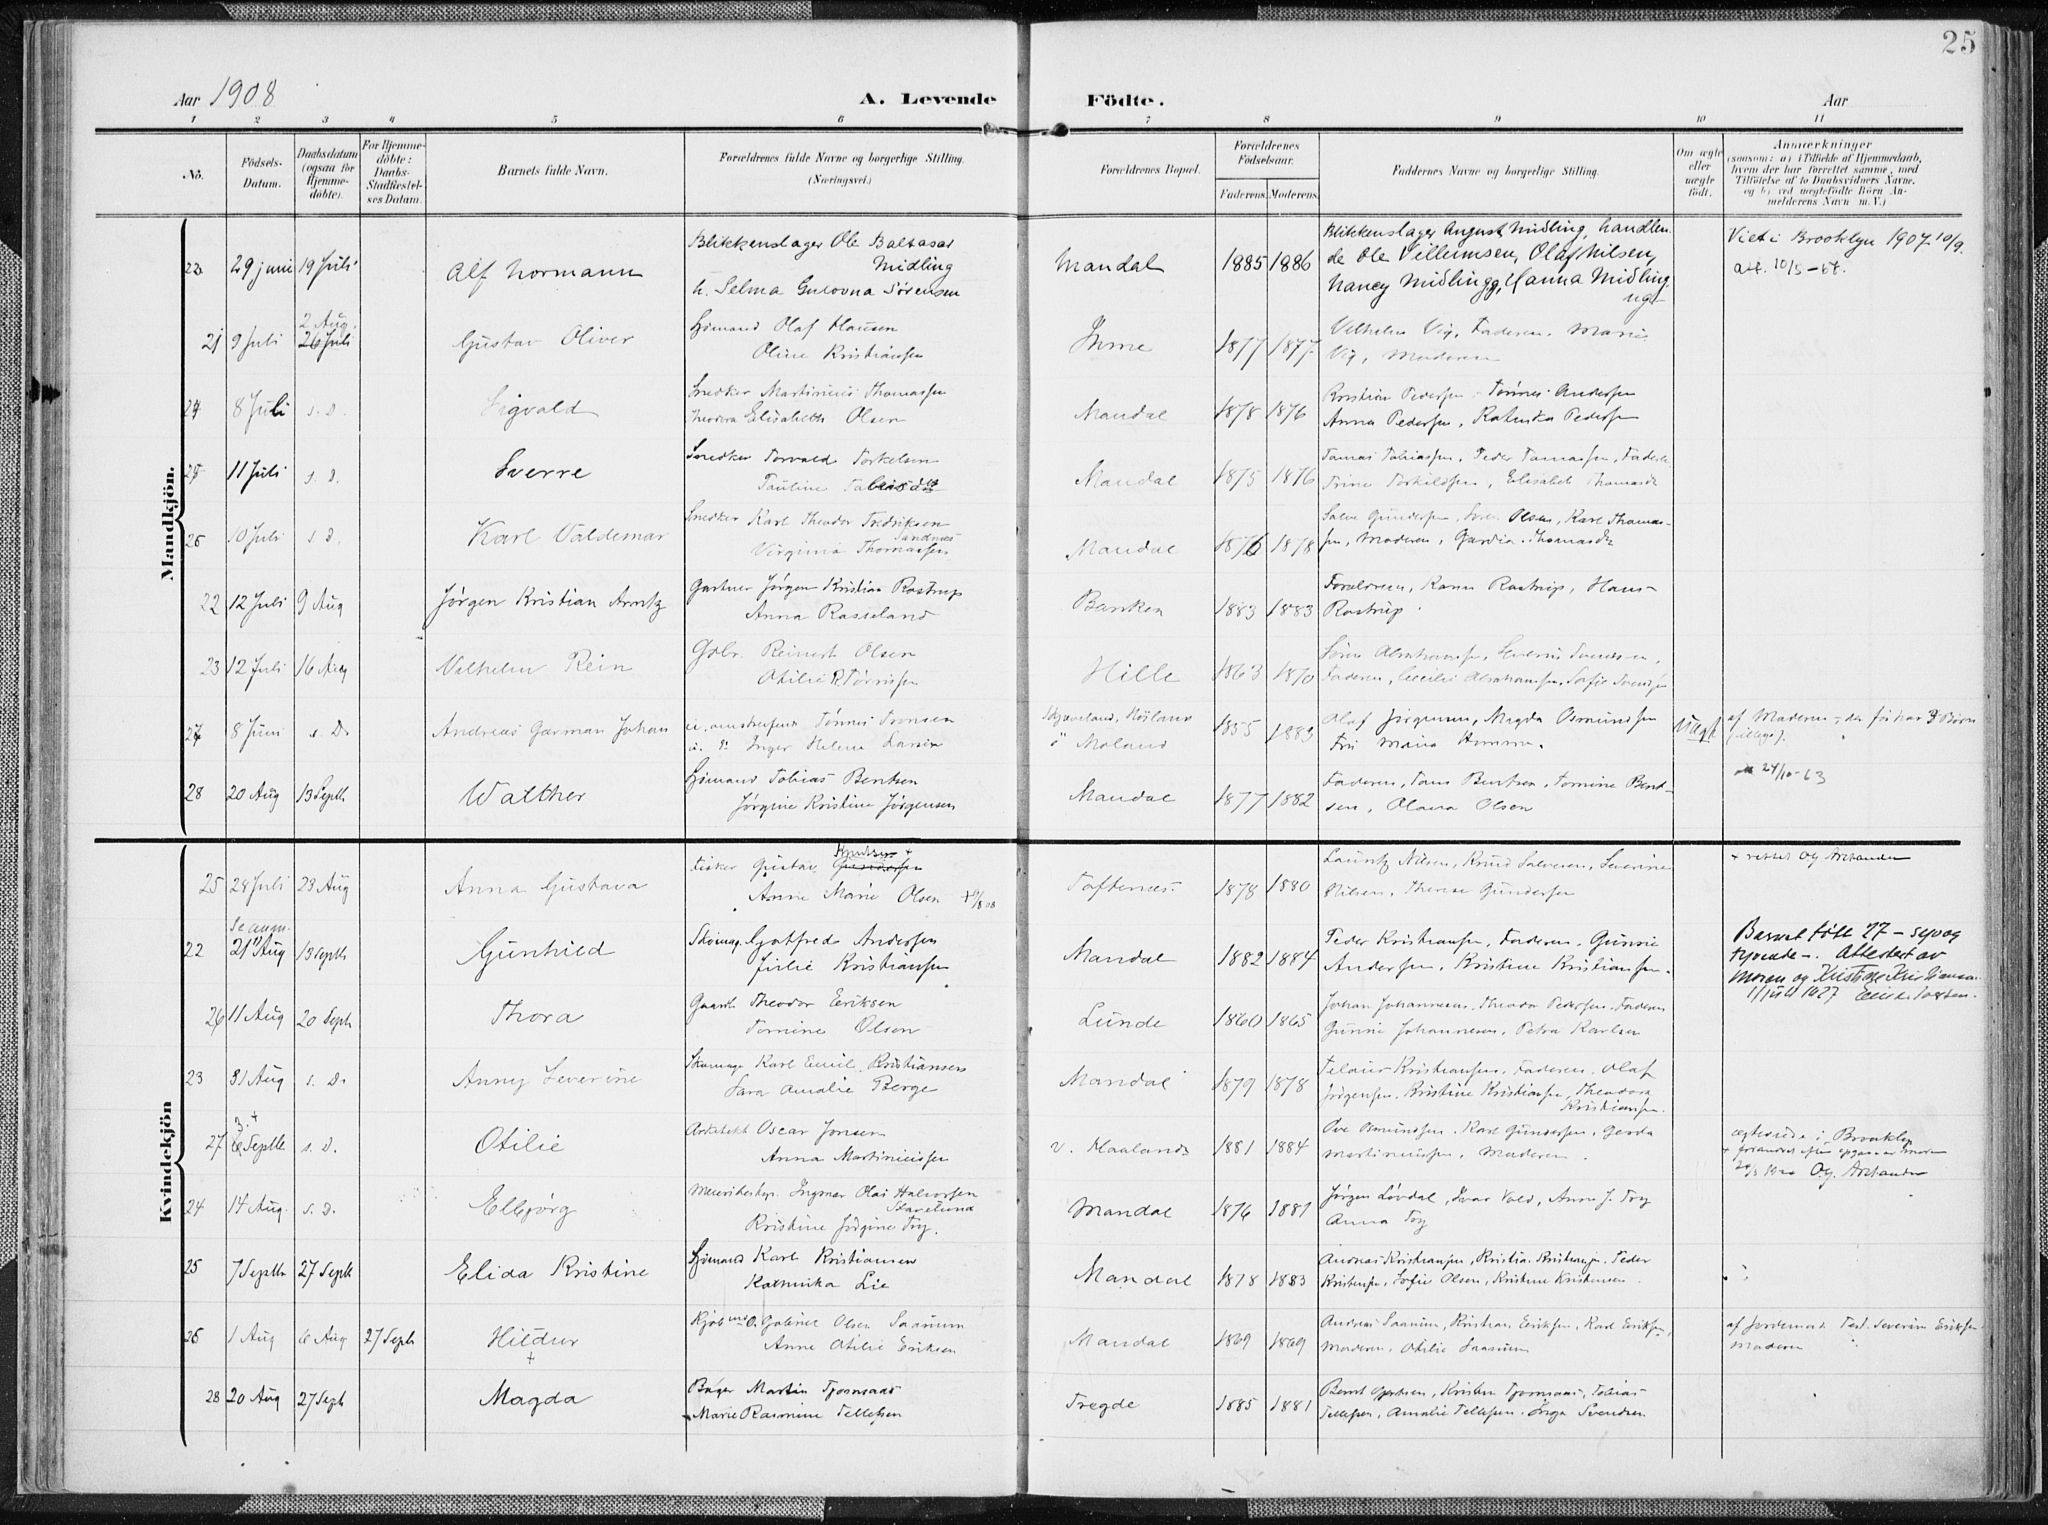 25
Aar 1908
A. Levende Födte.
Aar
1 2 3 4 5 6 7 8 9 10 11
No.
Födsels-Datum.
Daabsdatum (ogsaa for Hjemme-döbte).
For Hjemme-döbte: Daabs-Stadfæstel-ses Datum.
Barnets fulde Navn.
Forældrenes fulde Navne og borgerlige Stilling. (Næringsvei.)
Forældrenes Bopæl.
Forældrenes Födselsaar.
Faderens. Moderens.
Faddernes Navne og borgerlige Stilling.
Om ægte eller uægte födt.
Anmærkninger
(saasom: a) i Tilfælde af Hjemmedaab,
hvem der har forrettet samme, med
Tilföielse af to Daabsvidners Navne,
og b) ved uægtefödte Börn An-
melderens Navn m. V.)
Mandkjön.
29 juni 19 Juli Alf Normann
Blikkenslager Ole Baltasar
Midling
h. Selma Gurovna Sörensen
Mandal 1885 1886
Blikkenslager August Midling, handlen-
de Ole Villumsen, Olaf Nilsen,
Nancy Midling, Hanna Midling
Viet i Brooklyn 1907 10/9.
att. 10/5-
21 9 Juli 2 Aug. 26 Juli Gustav Oliver
Sjömand Olaf Hansen
Oline Kristiansen
Ihme 1877 1877
Vilhelm Vig, Faderen, Marie
Vig, Moderen
24 8 Juli s. D. Sigvald
Snedker Martinius Thomassen
Theodora Elisabeth Olsen
Mandal 1878 1876
Kristian Pedersen, Tönnes Andersen
Anna Pedersen, Katinka Pedersen
25 11 Juli s. D. Sverre
Snedker Torvald Torkelsen
Mandal 1875 1876
Tomas Tobiassen, Peder Tomassen, Faderen
Trine Torkildsen, Elisabet Thomasdr
26 10 Juli s. D. Karl Valdemar
Snedker Karl Theodor Fredriksen
Sandnes
Virginia Thomassen
Mandal 1876 1878
Olsen, Karl Thomas-
sen, Moderen, Thomasdr
22 12 Juli 9 Aug Jörgen Kristian Arntz
Gartner Jörgen Kristian Rostrup
Anna Rasseland
Banken 1883 1883
Forældrene, Karen Rostrup, Hans
Rostrup
23 12 Juli 16 Aug Vilhelm Rein
Gdbr. Reinert Olsen
Otilie R. Törrissen
Hille 1863 1870
Sören Abrahamsen, Severin Svendsen,
Faderen, Cecilie Abrahamsen, Sofie Svendsen
27 8 Juni s. D. Andreas Garman Johan
Tönnes Tronsen
Inger Helene Larsen
Moland 1855 1883
Olaf Jörgensen, Magda Osmundsen
Fru Maria Homme.
Uægte
af Moderen, der för har 3 Börn
28 20 Aug 13 Septb Walther
Sjömand Tobias Bentsen
Jörgine Kristine Jörgensen
Mandal 1877 1882
Faderen, Hans Bentsen, Tomine Bent-
sen, Olava Olsen
24/10-63
Kvindekjön
25 28 Juli 23 Aug Anna Gustava
Fisker Gustav Knutsen +
Gundersen
Anne Marie Olsen
1878 1880
Lauritz Nilsen, Knud Salvesen, Severine
Nilsen, Therese Gundersen
+ rettet Og. Aretander
Se anm.
22 21 Aug 13 Septb Gunhild
Skomag. Gotfred Andersen
Julie Kristiansen
Mandal 1882 1884
Peder Kristiansen, Faderen, Gunnie
Andersen, Kristine Kristiansen.
Barnet født 27 – syvog
tyvende –. Attestert av
moren og Kristine Kristiansen
1 juli 1927
26 11 Aug 20 Septb Thora
Gaardb. Theodor Eriksen
Tomine Olsen
Lunde 1860 1865
Johan Johannesen, Theodor Pedersen, Faderen
Gunnie Johannesen, Petra Karlsen
23 31 Aug s. D. Anny Severine
Skomag. Karl Emil Kristiansen
Sara Amalie Berge
Mandal 1879 1878
Kristiansen, Faderen, Olaf
Jörgensen, Kristine Kristiansen, Theodora
Kristiansen.
27 Septb s. D. Otilie
Arkitekt Oscar Jonsen
Anna Martiniussen
v. Haaland 1881 1884
Ove Osmundsen, Karl Gundersen, Gerda
Martiniussen, Moderen.
ægteviede i Brooklyn
+ forandret efter opgave av moren
Og. Aretander
24 14 Aug. s. D. Elbjörg
Meieribestyr. Ingmar Olai Halvorsen
Skavelund
Kristine Jörgine Try.
Mandal 1876 1881
Jörgen Lövdal, Ivar Vold, Anne J. Try
Anna Try
25 7 Septb 27 Septb Elida Kristine
Sjömand Karl Kristiansen
Kathinka Lie
Mandal 1878 1883
Andreas Kristiansen, Kristian Kristiansen, Peder
Kristensen, Sofie Olsen, Kristine Kristensen
26 1 Aug 6 Aug 27 Septb Hildur
+
Kjöbmd O. Gabriel Olsen Saanum
Anne Otilie Eriksen
Mandal 1869 1869
Andreas Saanum, Kristian Eriksen, Karl Eriksen,
Moderen, Otilie Saanum
af Jordemor Fad. Severin Eriksen
Moderen
28 20 Aug 27 Septb Magda
Bager Martin Tjomsaas
Marie Rasmine Tellefsen
Tregde 1885 1881
Bernt Gjertsen, Kristen Tjomsaas, Tobias
Tellefsen, Amalie Tellefsen, Inga Svendsen